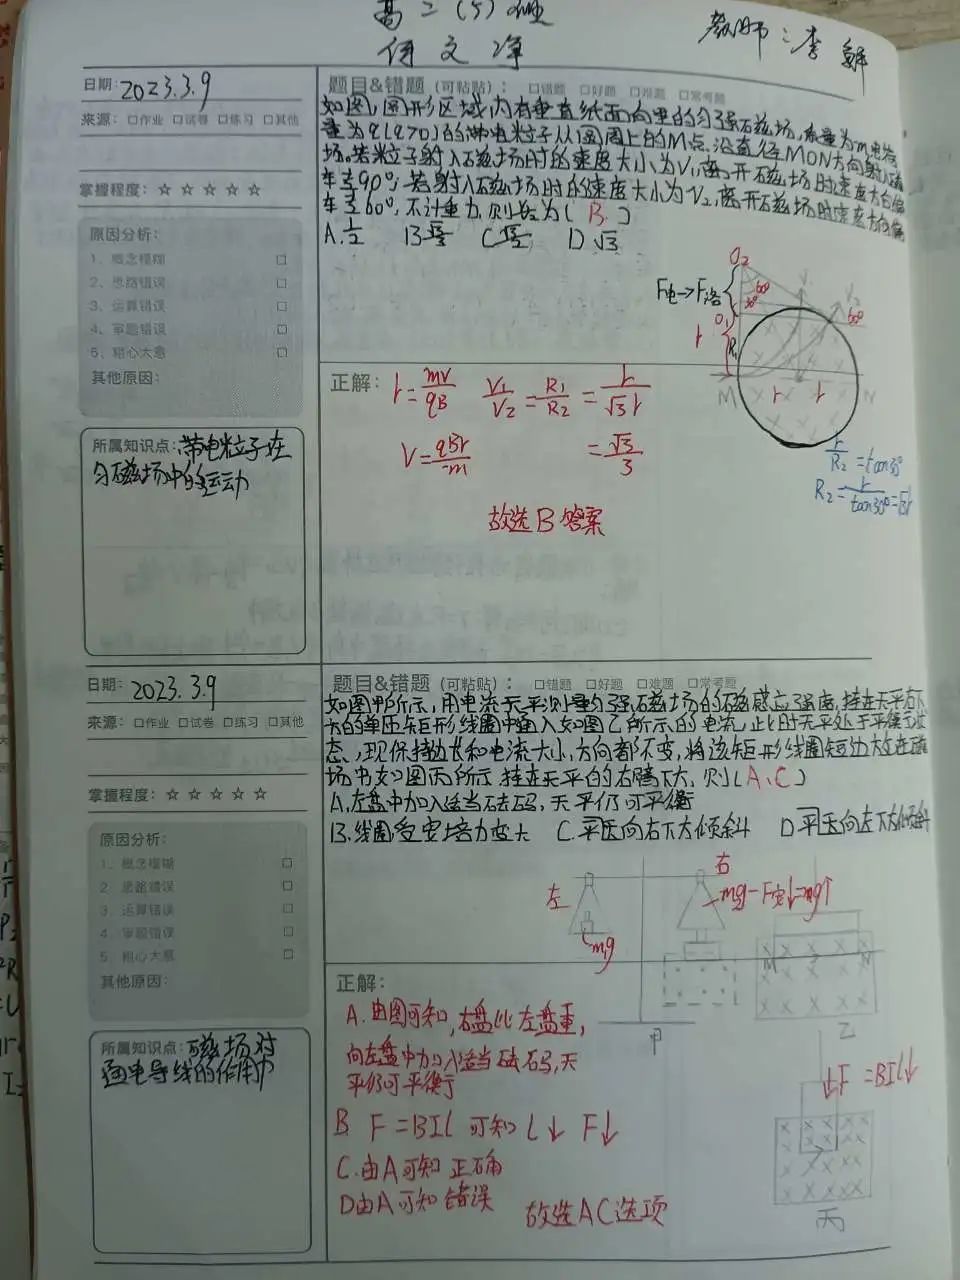 高二(5)班
教师:李
日期: 2023.3.9
题目&错题 (可粘贴): □错题 □好题 □难题 □常考题
来源: □作业 □试卷 □练习 □其他
如图,圆形区域内有垂直纸面向里的匀强磁场,质量为m,电荷
量为q(q>0)的带电粒子从圆周上的M点沿直径MON方向射入磁
场。若粒子射入磁场时的速度大小为V1,离开磁场时速度方向偏
转90°;若射入磁场时的速度大小为V2,离开磁场时速度方向偏
转60°,不计重力,则 为( B )
A. 1/2 B √3/3 C √3/2 D √3
掌握程度: ☆ ☆ ☆ ☆ ☆
原因分析:
1、概念模糊 □
2、思路错误 □
3、运算错误 □
4、审题错误 □
5、粗心大意 □
其他原因:
O2
60°
30°
F电→F洛
O1
r
R1
V1
V2
60°
M
r
r
N
正解: r=mv/qB V1/V2=R1/R2=r/√3r
V=qBr/m =√3/3
故选B答案
r/R2=tan30°
R2=r/tan30°=√3r
所属知识点:带电粒子在
匀磁场中的运动
日期: 2023.3.9
题目&错题 (可粘贴): □错题 □好题 □难题 □常考题
来源: □作业 □试卷 □练习 □其他
如图甲所示,用电流天平测量匀强磁场的磁感应强度,挂在天平右下
方的单匝矩形线圈中通入如图乙所示的电流,此时天平处于平衡状
态,现保持边长和电流大小,方向都不变,将该矩形线圈短边放在磁
场中如图丙所示,挂在天平的右臂下方,则(A、C)
A,左盘中加入适当砝码,天平仍可平衡
B.线圈受安培力变大 C.平 向右下方倾斜 D平 向左下方倾斜
掌握程度: ☆ ☆ ☆ ☆ ☆
原因分析:
1、概念模糊 □
2、思路错误 □
3、运算错误 □
4、审题错误 □
5、粗心大意 □
其他原因:
左
右
mg-F安↓=mg↑
m1g
M
N
甲
乙
正解:
A.由图可知,右盘比左盘重,
向左盘中加入适当砝码,天
平仍可平衡
B F=BIL 可知 L↓ F↓
C.由A可知 正确
D由A可知 错误
故选AC选项
↓F =BIL↓
丙
所属知识点:磁场对
通电导线的作用力